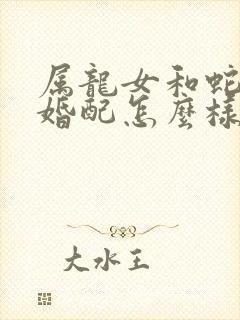 属龍女和蛇
婚配怎麽樣
大水王